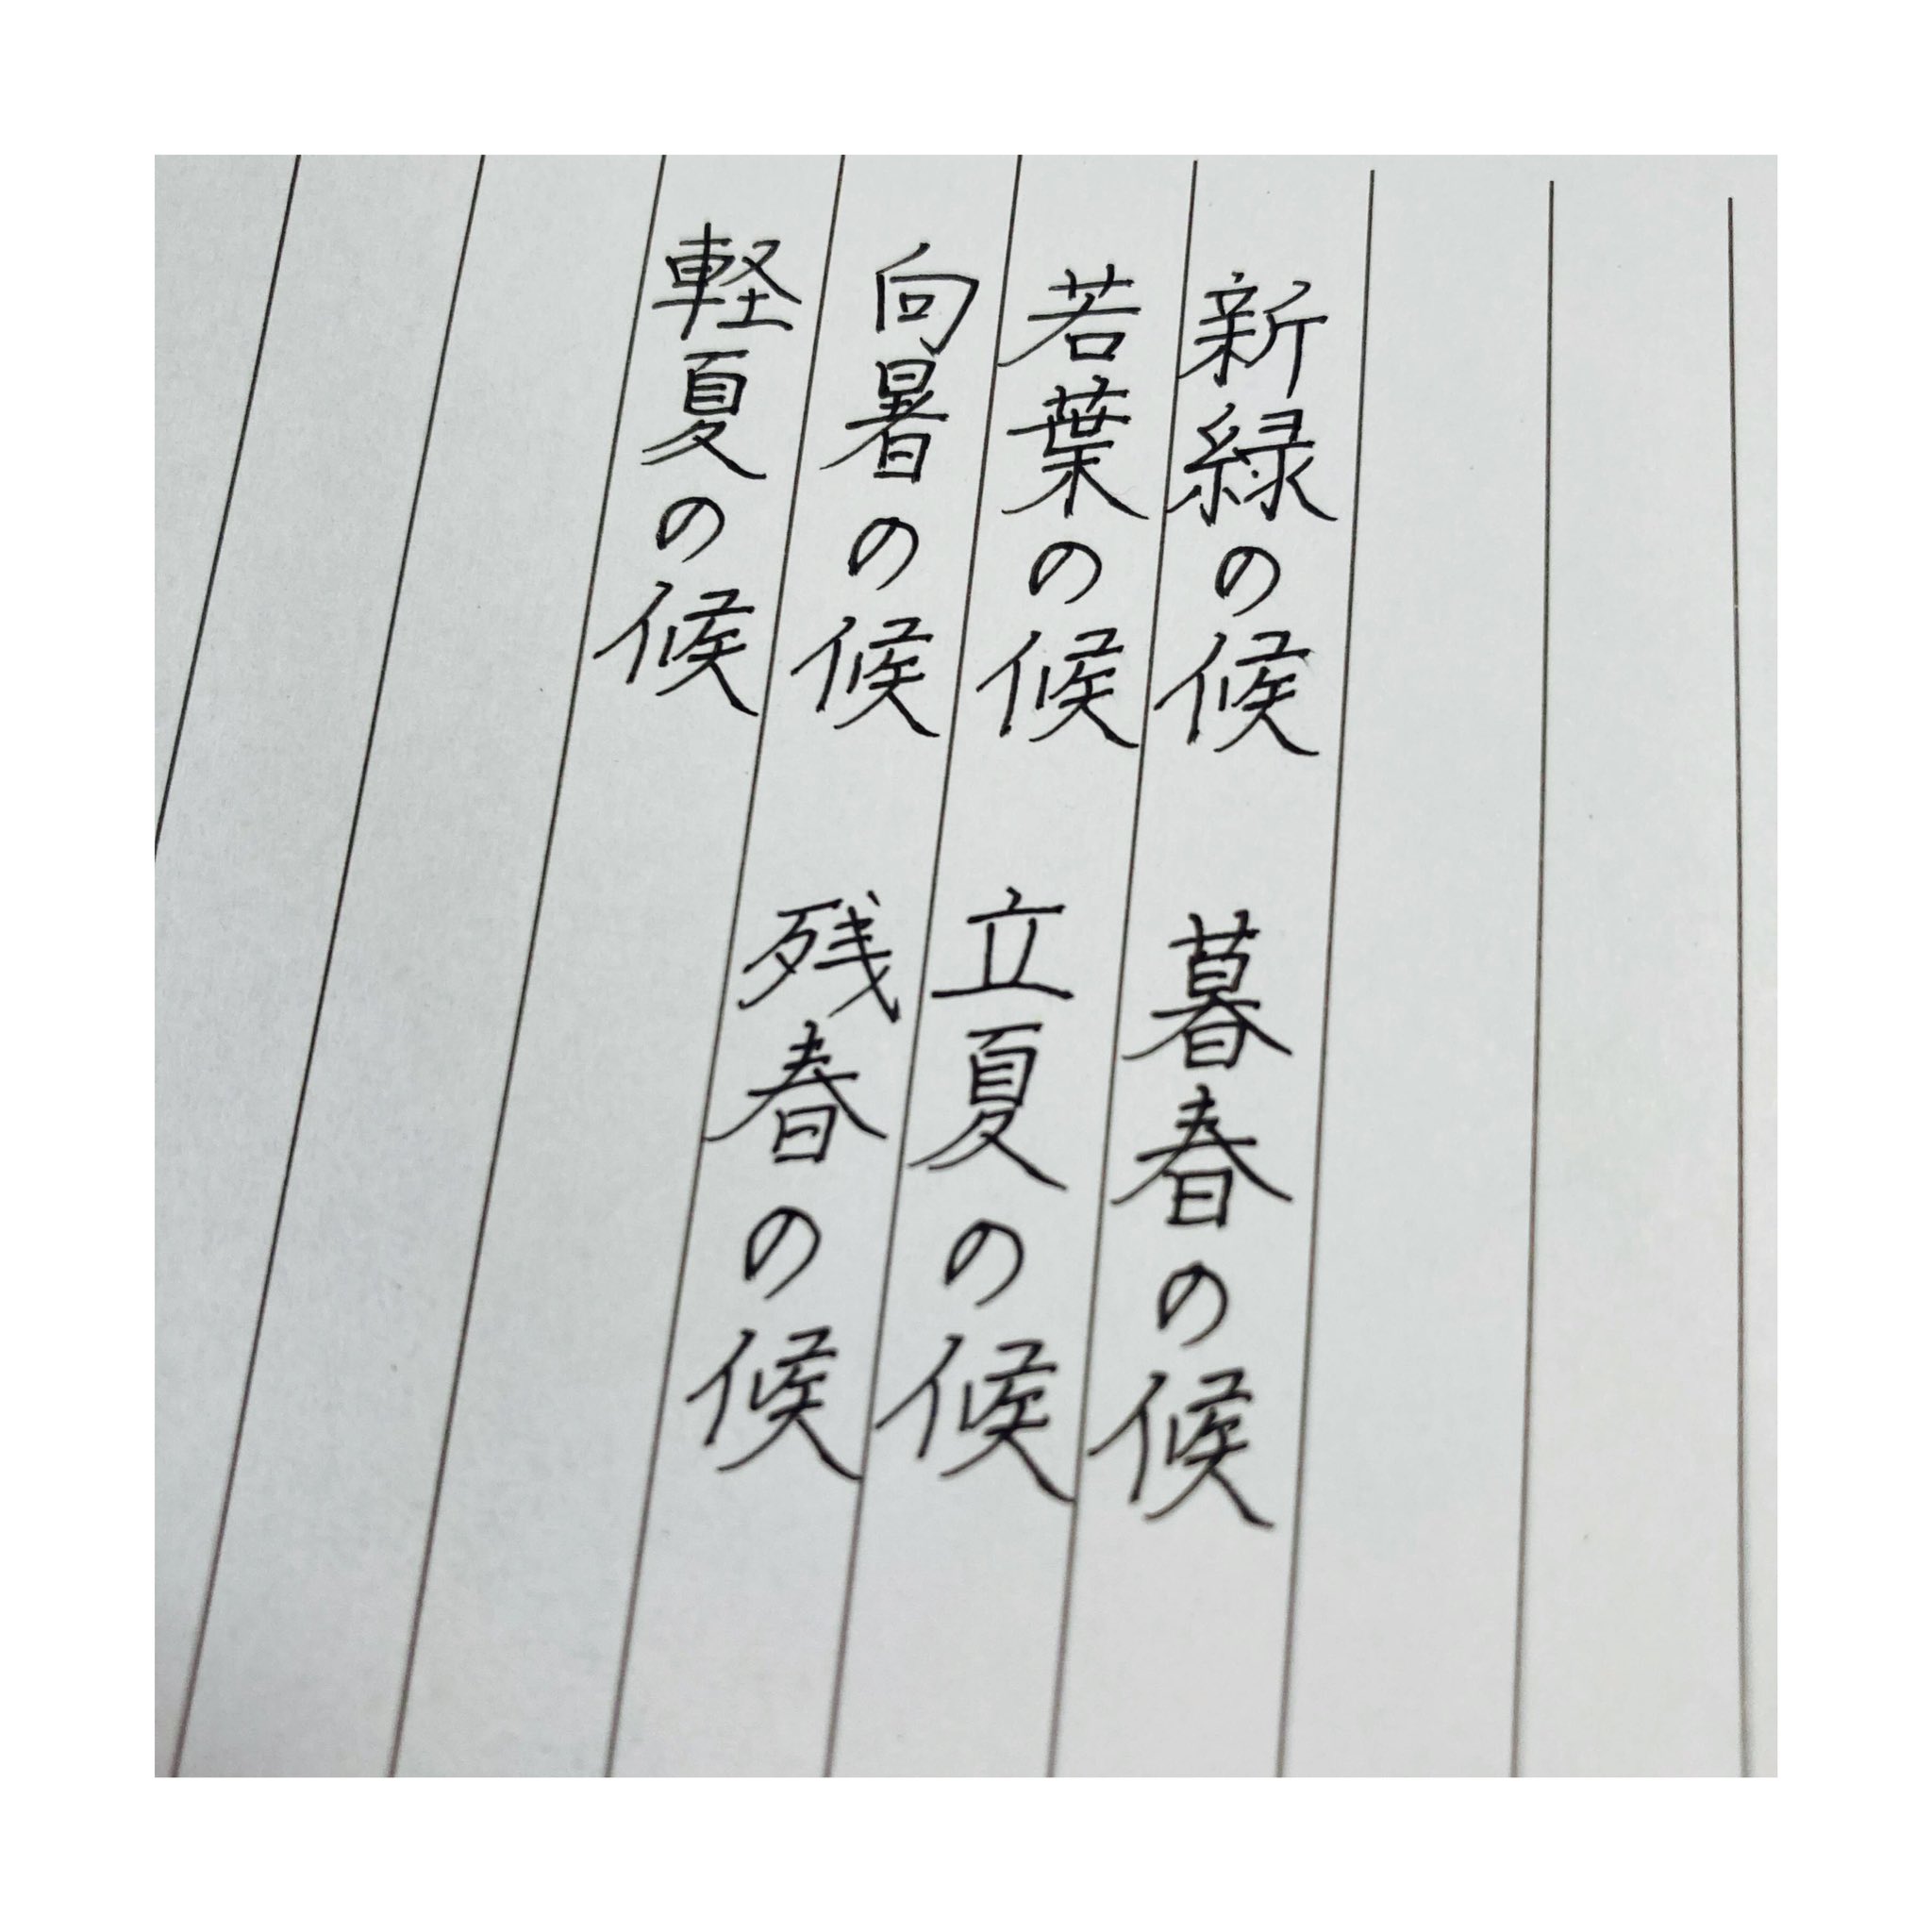 新緑の候　暮春の候
若葉の候　立夏の候
向暑の候　残春の候
軽夏の候